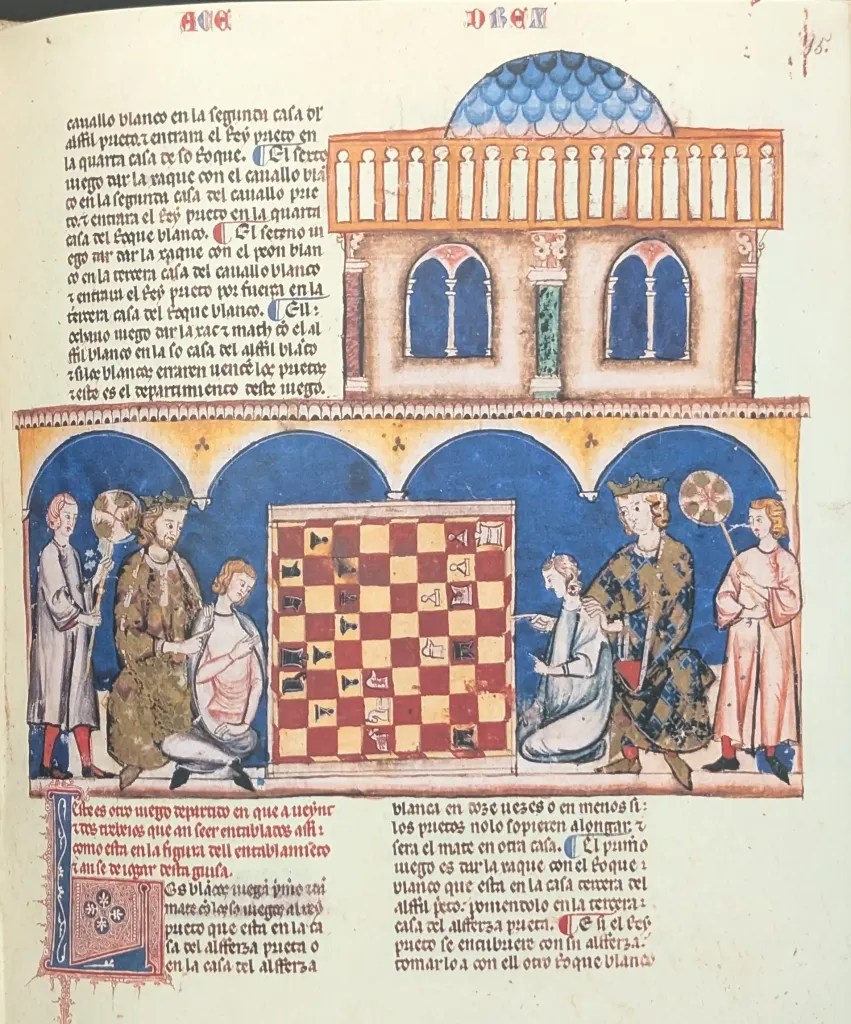 ACE
DREX
95.
cauallo blanco en la segunda casa dl
alffil prieto. ⁊ entrara el Rey prieto en
la quarta casa de so Roque. ¶ El sexto
iuego dar la xaque con el cauallo blã
co en la segunda casa del cauallo prie
to. ⁊ entrara el Rey prieto en la quarta
casa del Roque blanco. ¶ El seteno iu
ego dar dar la xaque con el peon blan
co en la tercera casa del cauallo blanco
⁊ entrara el Rey prieto por fuerça en la
tercera casa del Roque blanco. ¶ El
ochauo iuego dar la xac ⁊ math cõ el al
ffil blanco en la so casa del alffil blãco
⁊ si los blancos erraren uencẽ los prietos
⁊ este es el departimiento deste iuego.
Este es otro iuego departido en que a ueynt
⁊ dos trebeios que an seer entablados assi
como esta en la figura dell entablamiẽto
⁊ an se de iogar desta guisa.
Los blãcos iuegã primero
mate al rey
prieto que esta en la ca
sa del alfferza prieta o
en la casa del alfferza
blanca en doze uezes o en menos si
los prietos nolo sopieren alongar. ⁊
sera el mate en otra casa. ¶ El primo
iuego es dar la xaque con el Roque
blanco que esta en la casa tercera del
alffil prieto. poniendolo en la tercera
casa del alfferza prieta. ¶ E si el Rey
prieto se encubriere con su alfferza.
tomarlo a con ell otro Roque blanco